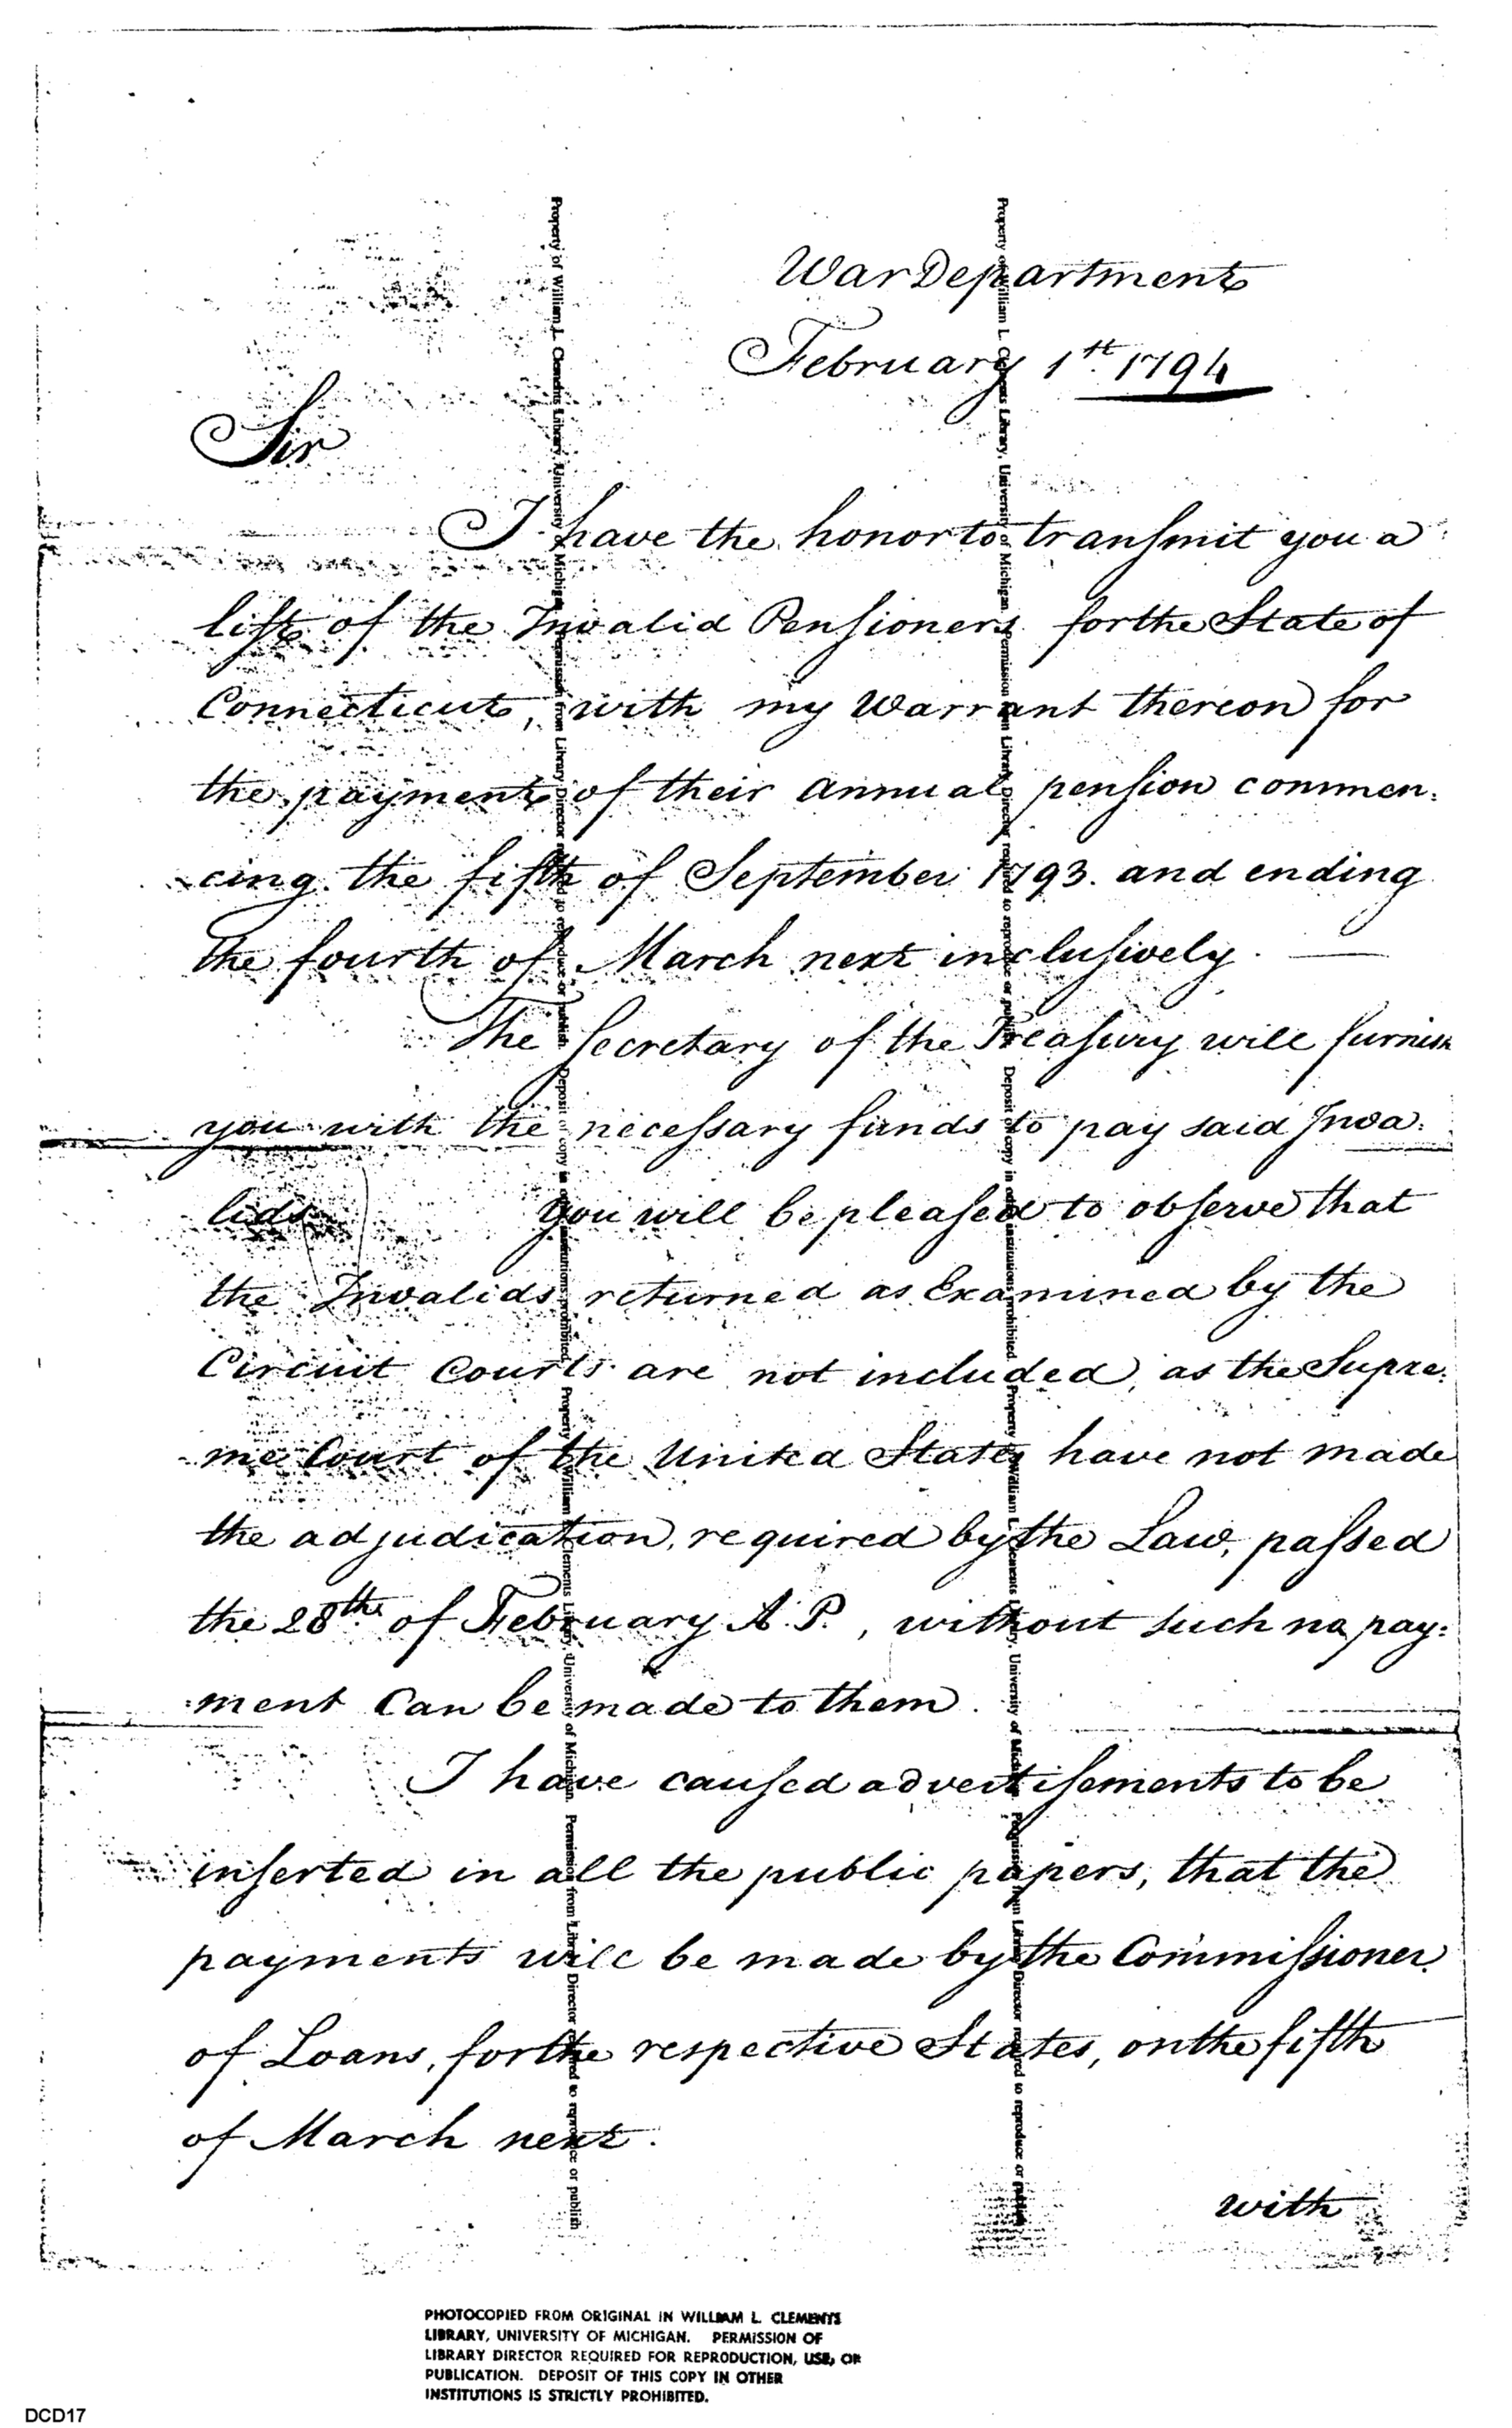 War Department
February 1st. 1794
Sir
I have the honor to transmit you a
list of the Invalid Pensioners for the State of
Connecticut, with my Warrant thereon for
the payment of their annual pension commen:
cing the fifth of September 1793. and ending
the fourth of March next inclusively.
The Secretary of the Treasury will furnish
you with the necessary funds to pay said Inva:
lids. You will be pleased to observe that
the Invalids returned as Examined by the
Circuit Courts are not included, as the Supre:
me Court of the United States have not made
the adjudication, required by the Law, passed
the 28th. of February A.P., without such no pay:
:ment Can be made to them.
I have caused advertisements to be
inserted in all the public papers, that the
payments will be made by the Commissioner
of Loans, for the respective States, on the fifth
of March next.
with
Property of William L. Clements Library, University of Michigan. Permission from Library Director required to reproduce or publish. Deposit of copy in other institutions prohibited.
Property of William L. Clements Library, University of Michigan. Permission from Library Director required to reproduce or publish
Property of William L. Clements Library, University of Michigan. Permission from Library Director required to reproduce or publish. Deposit of copy in other institutions prohibited.
Property of William L. Clements Library, University of Michigan. Permission from Library Director required to reproduce or publish
PHOTOCOPIED FROM ORIGINAL IN WILLIAM L. CLEMENTS
LIBRARY, UNIVERSITY OF MICHIGAN. PERMISSION OF
LIBRARY DIRECTOR REQUIRED FOR REPRODUCTION, USE, OR
PUBLICATION. DEPOSIT OF THIS COPY IN OTHER
INSTITUTIONS IS STRICTLY PROHIBITED.
DCD17